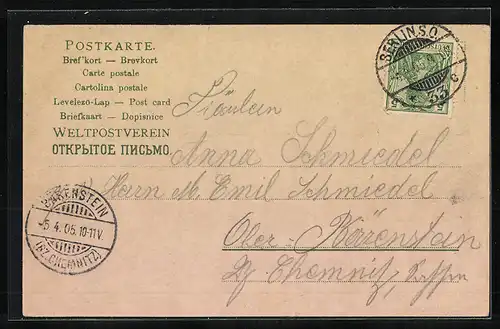 POSTKARTE.
Bref'kort — Brevkort
Carte postale
Cartolina postale
Levelező-Lap — Post card
Briefkaart — Dopisnice
WELTPOSTVEREIN
ОТКРЫТОЕ ПИСЬМО.
BERLIN S.O.
33 c
Fräulein
Anna Schmiedel
Herrn M. Emil Schmiedel
Ober-Bärenstein
Bz Chemnitz, Sachsen
BÄRENSTEIN
-5.4.05.10-11V.
(BZ. CHEMNITZ)